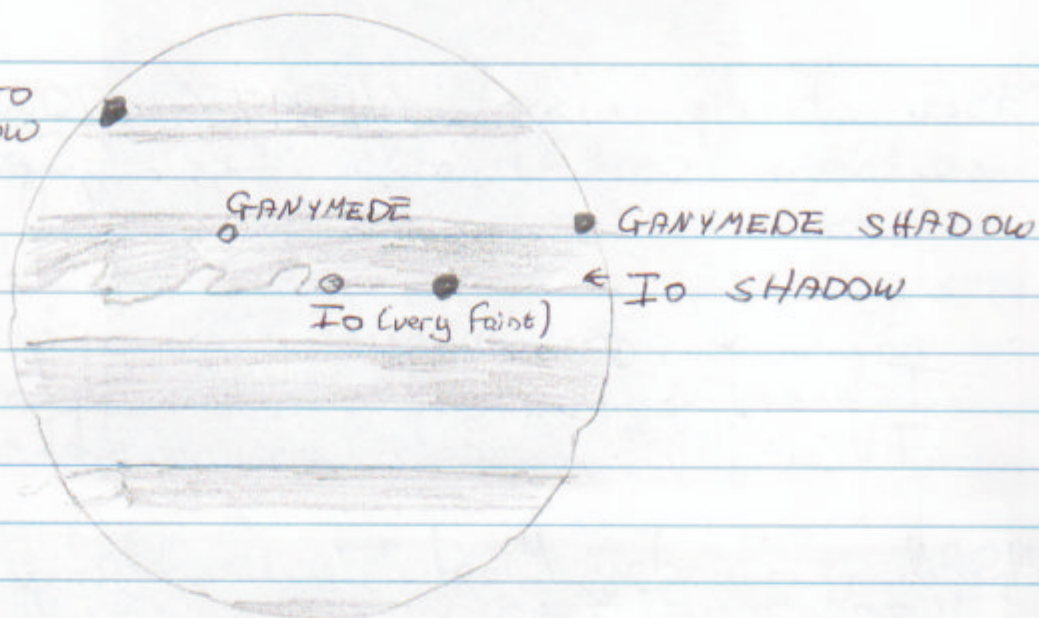 TO
OW
GANYMEDE
GANYMEDE SHADOW
← IO SHADOW
Io (very faint)